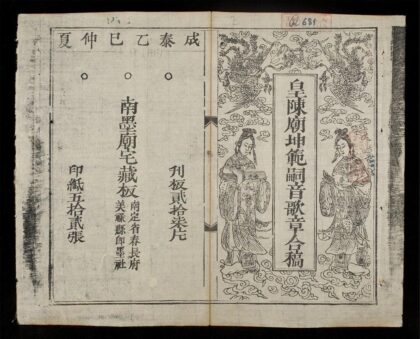 皇陳廟坤範嗣音歌章合稿
成泰乙巳仲夏
刊板貳拾柒片
南墨廟宅藏板
南定省春長府
美祿縣即墨社
印紙五拾貳張
681